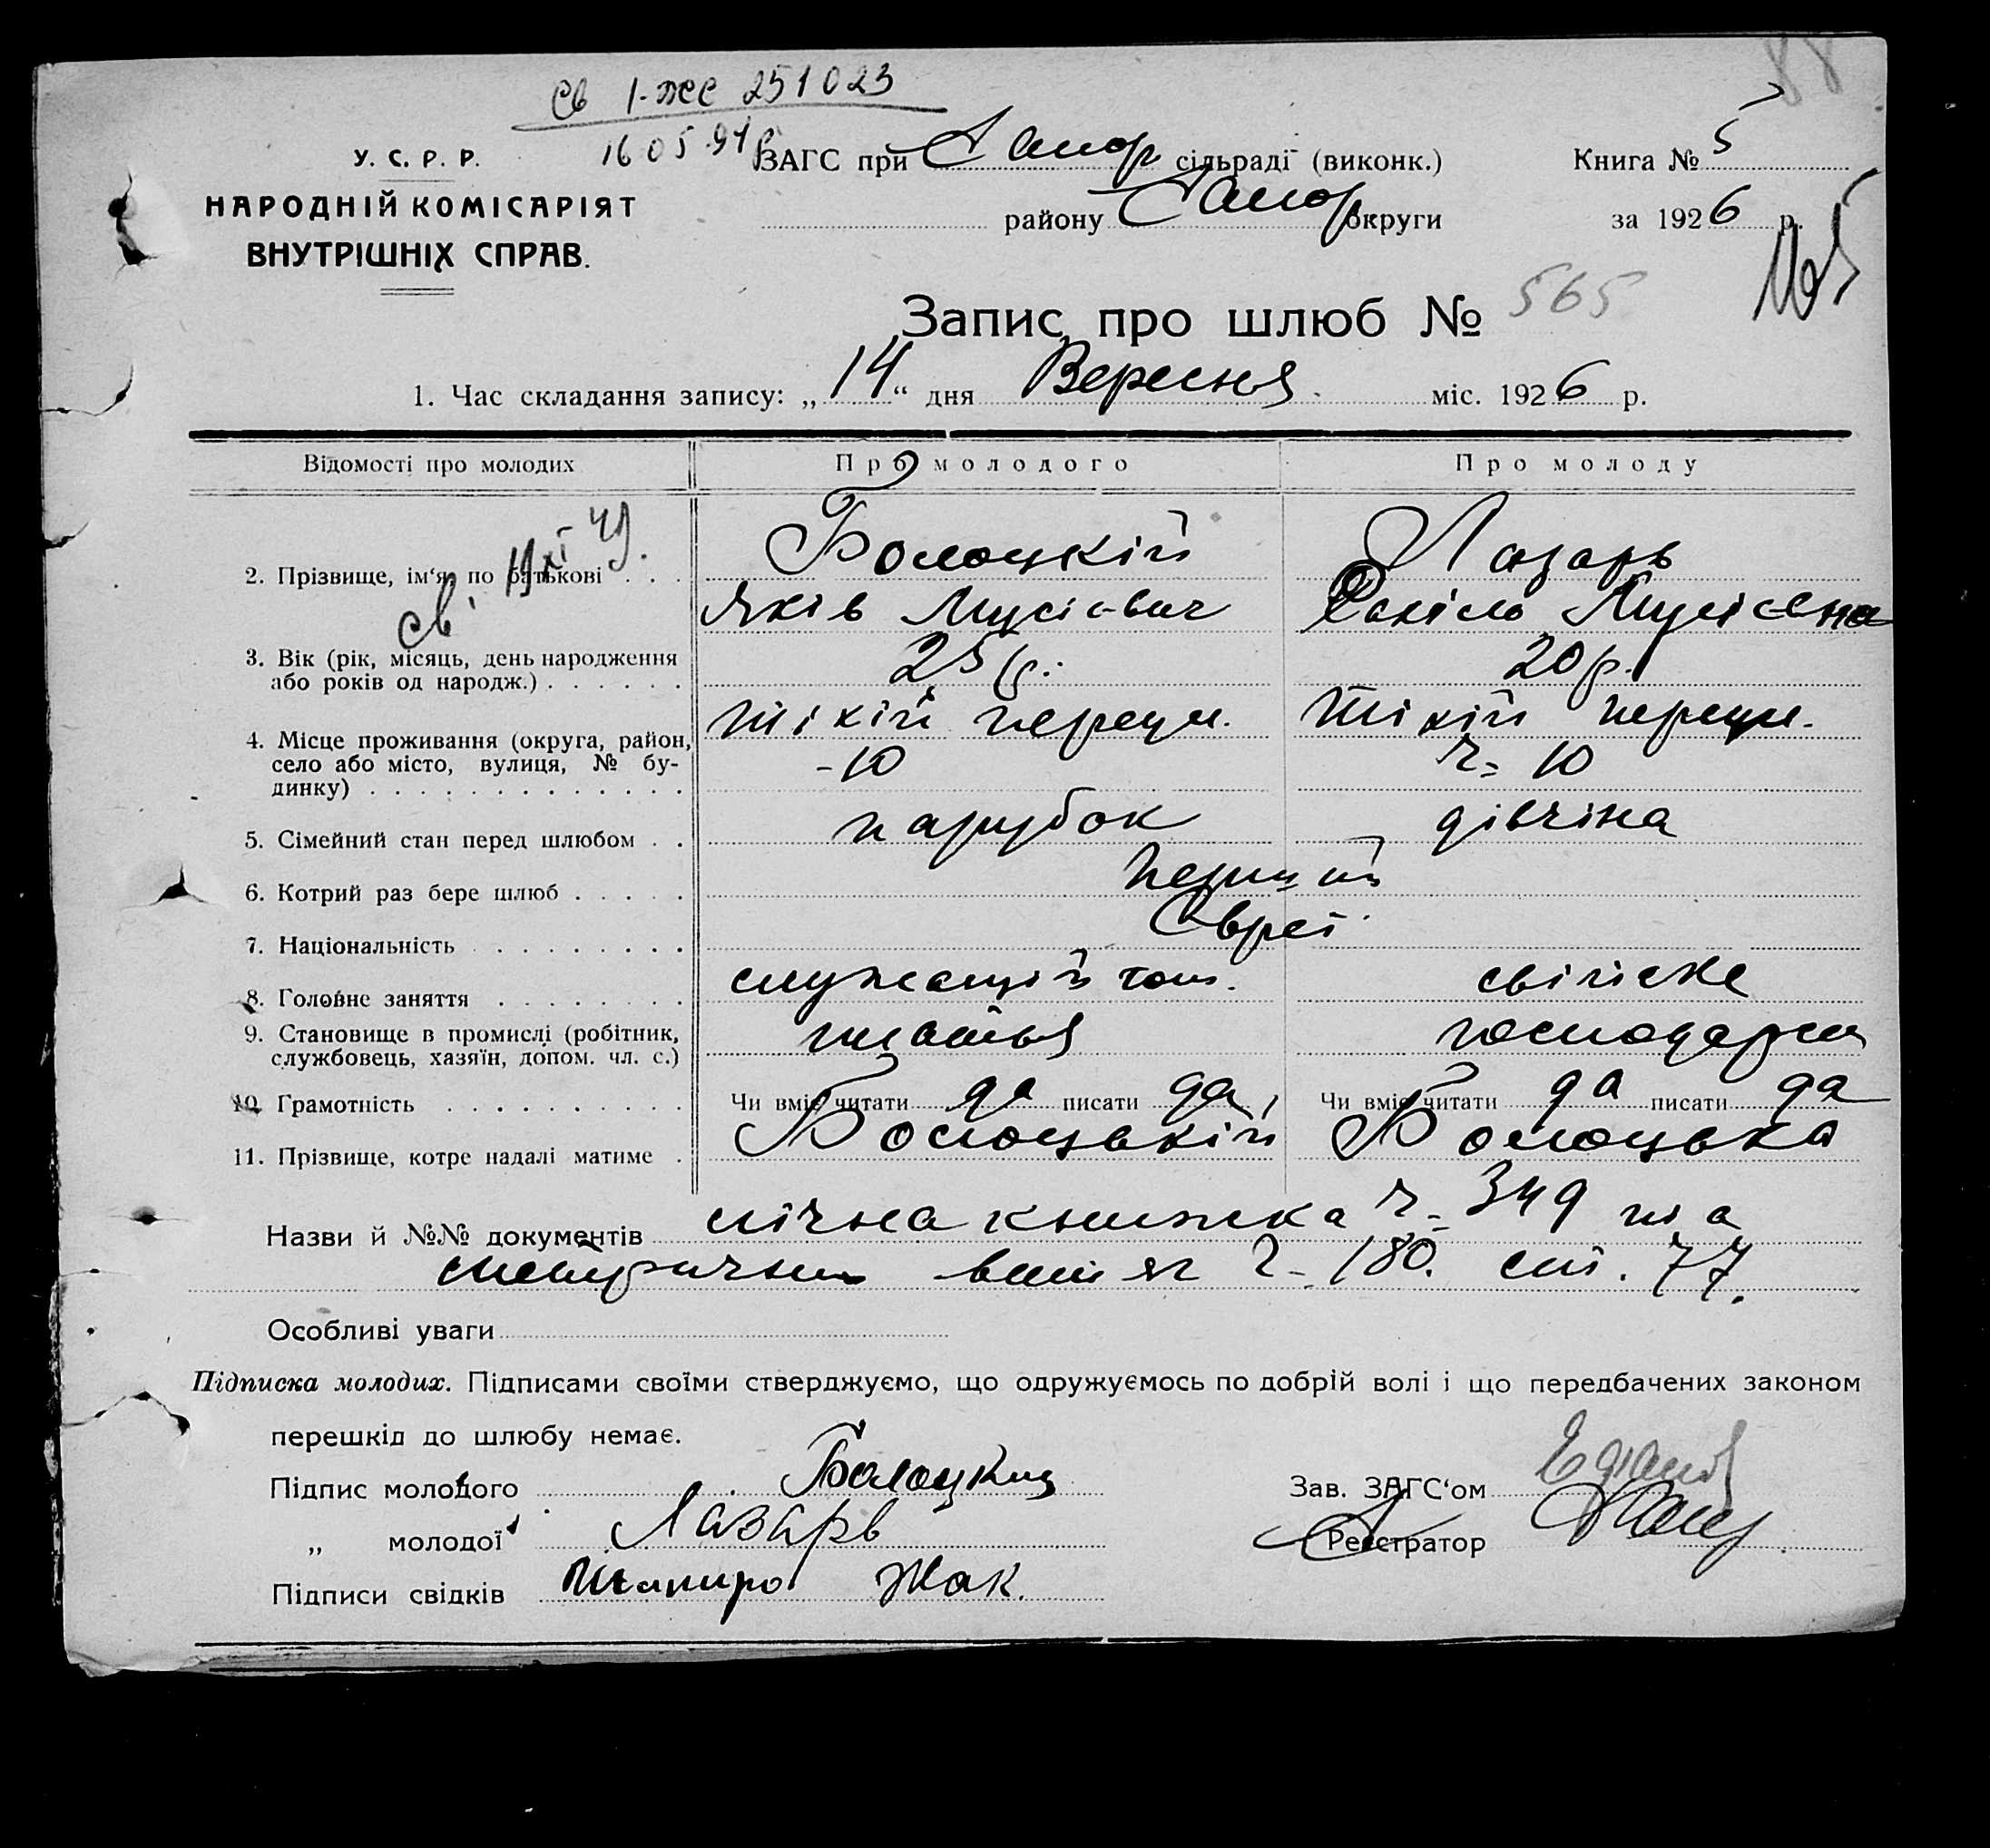 88
Св I-ЖС 251023
16 05.91р
У. С. Р. Р.
НАРОДНІЙ КОМІСАРІЯТ
ВНУТРІШНІХ СПРАВ.
ЗАГС при Запор сільраді (виконк.)
району Запор округи
Книга № 5
за 1926 р.
Запис про шлюб № 565
1. Час складання запису: „14“ дня Вересня міс. 1926 р.
Відомості про молодих Про молодого Про молоду
2. Прізвище, ім‘я, по батькові . . . Болоцкій Лазарь
Яків Мусієвич Рахіль Мусієвна
Св. 19 XI 49.
3. Вік (рік, місяць, день народження 25 р. 20 р.
або років од народж.) . . . . . .
4. Місце проживання (округа, район, Тікій переул. Тікій переул.
село або місто, вулиця, № бу- -10 ч= 10
динку) . . . . . . . . . . . . .
5. Сімейний стан перед шлюбом . . парубок дівчіна
6. Котрий раз бере шлюб . . . . . перший
7. Національність . . . . . . . . . Євреї
8. Головне заняття . . . . . . . . служащій
9. Становище в промислі (робітник, господарка
службовець, хазяїн, допом. чл. с.)
10. Грамотність . . . . . . . . . . Чи вміє читати да писати да, Чи вміє читати да писати да
11. Прізвище, котре надалі матиме . Болоцький Болоцька
Назви й №№ документів лічна книжка ч= 349 та
ч- 180. ст. 77.
Особливі уваги
Підписка молодих. Підписами своїми стверджуємо, що одружуємось по добрій волі і що передбачених законом
перешкід до шлюбу немає.
Підпис молодого Болоцкий
„ молодої Лазарь
Підписи свідків Шапиро Жак.
Зав. ЗАГС‘ом
Реєстратор